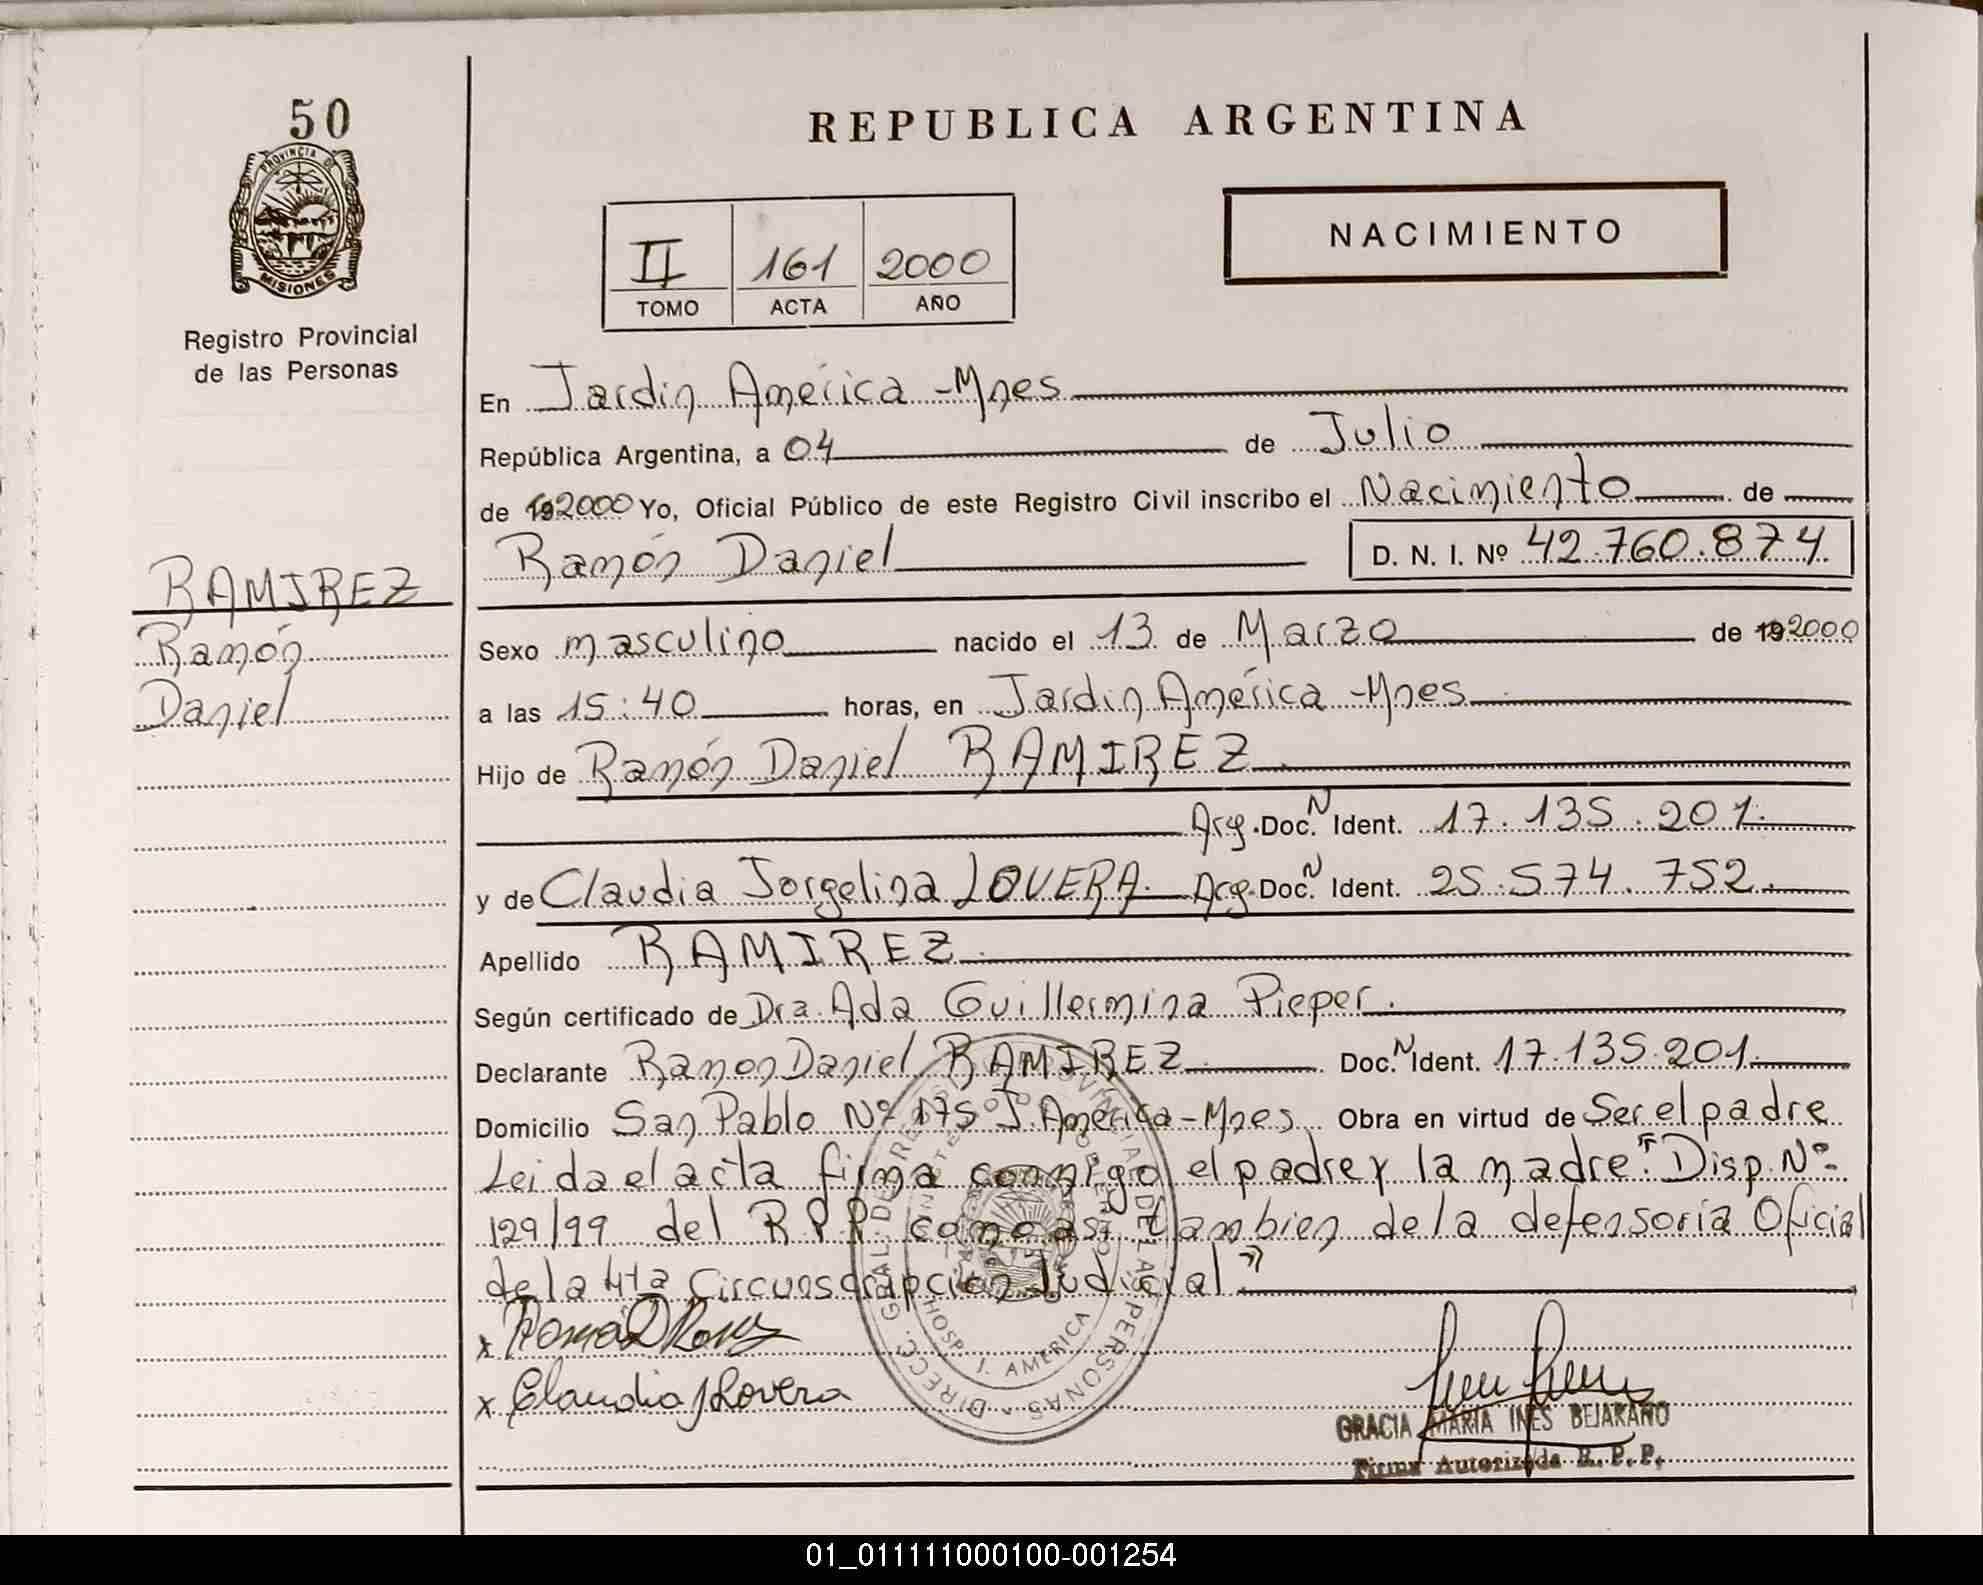 50
PROVINCIA DE
MISIONES
Registro Provincial
de las Personas
RAMIREZ
Ramón
Daniel
REPUBLICA ARGENTINA
II 161 2000
TOMO ACTA AÑO
NACIMIENTO
En Jardin América -Mnes
República Argentina, a 04 de Julio
de 192000 Yo, Oficial Público de este Registro Civil inscribo el Nacimiento de
Ramón Daniel D. N. I. Nº 42.760.874
Sexo masculino nacido el 13 de Marzo de 192000
a las 15:40 horas, en Jardin América -Mnes
Hijo de Ramón Daniel RAMIREZ
Arg. Doc. N Ident. 17.135.201.
y de Claudia Jorgelina LOVERA. Arg. Doc. N Ident. 25.574.752.
Apellido RAMIREZ.
Según certificado de Dra. Ada Guillermina Pieper.
Declarante Ramon Daniel RAMIREZ. Doc. N Ident. 17.135.201.
Domicilio San Pablo Nº 175 J. América-Mnes. Obra en virtud de Ser el padre
Leida el acta firma conmigo el padre y la madre. "Disp. Nº
129/99 del R.P.P. como asi tambien de la defensoria Oficial
de la 4ta Circunscripcion Judicial"
x
x Claudia J Lovera
DIRECC. GRAL DE REGISTRO PROVINCIAL DE LAS PERSONAS
HOSP. J. AMERICA
GRACIA MARIA INES BEJARANO
Firma Autorizada R. P. P.
01_011111000100-001254